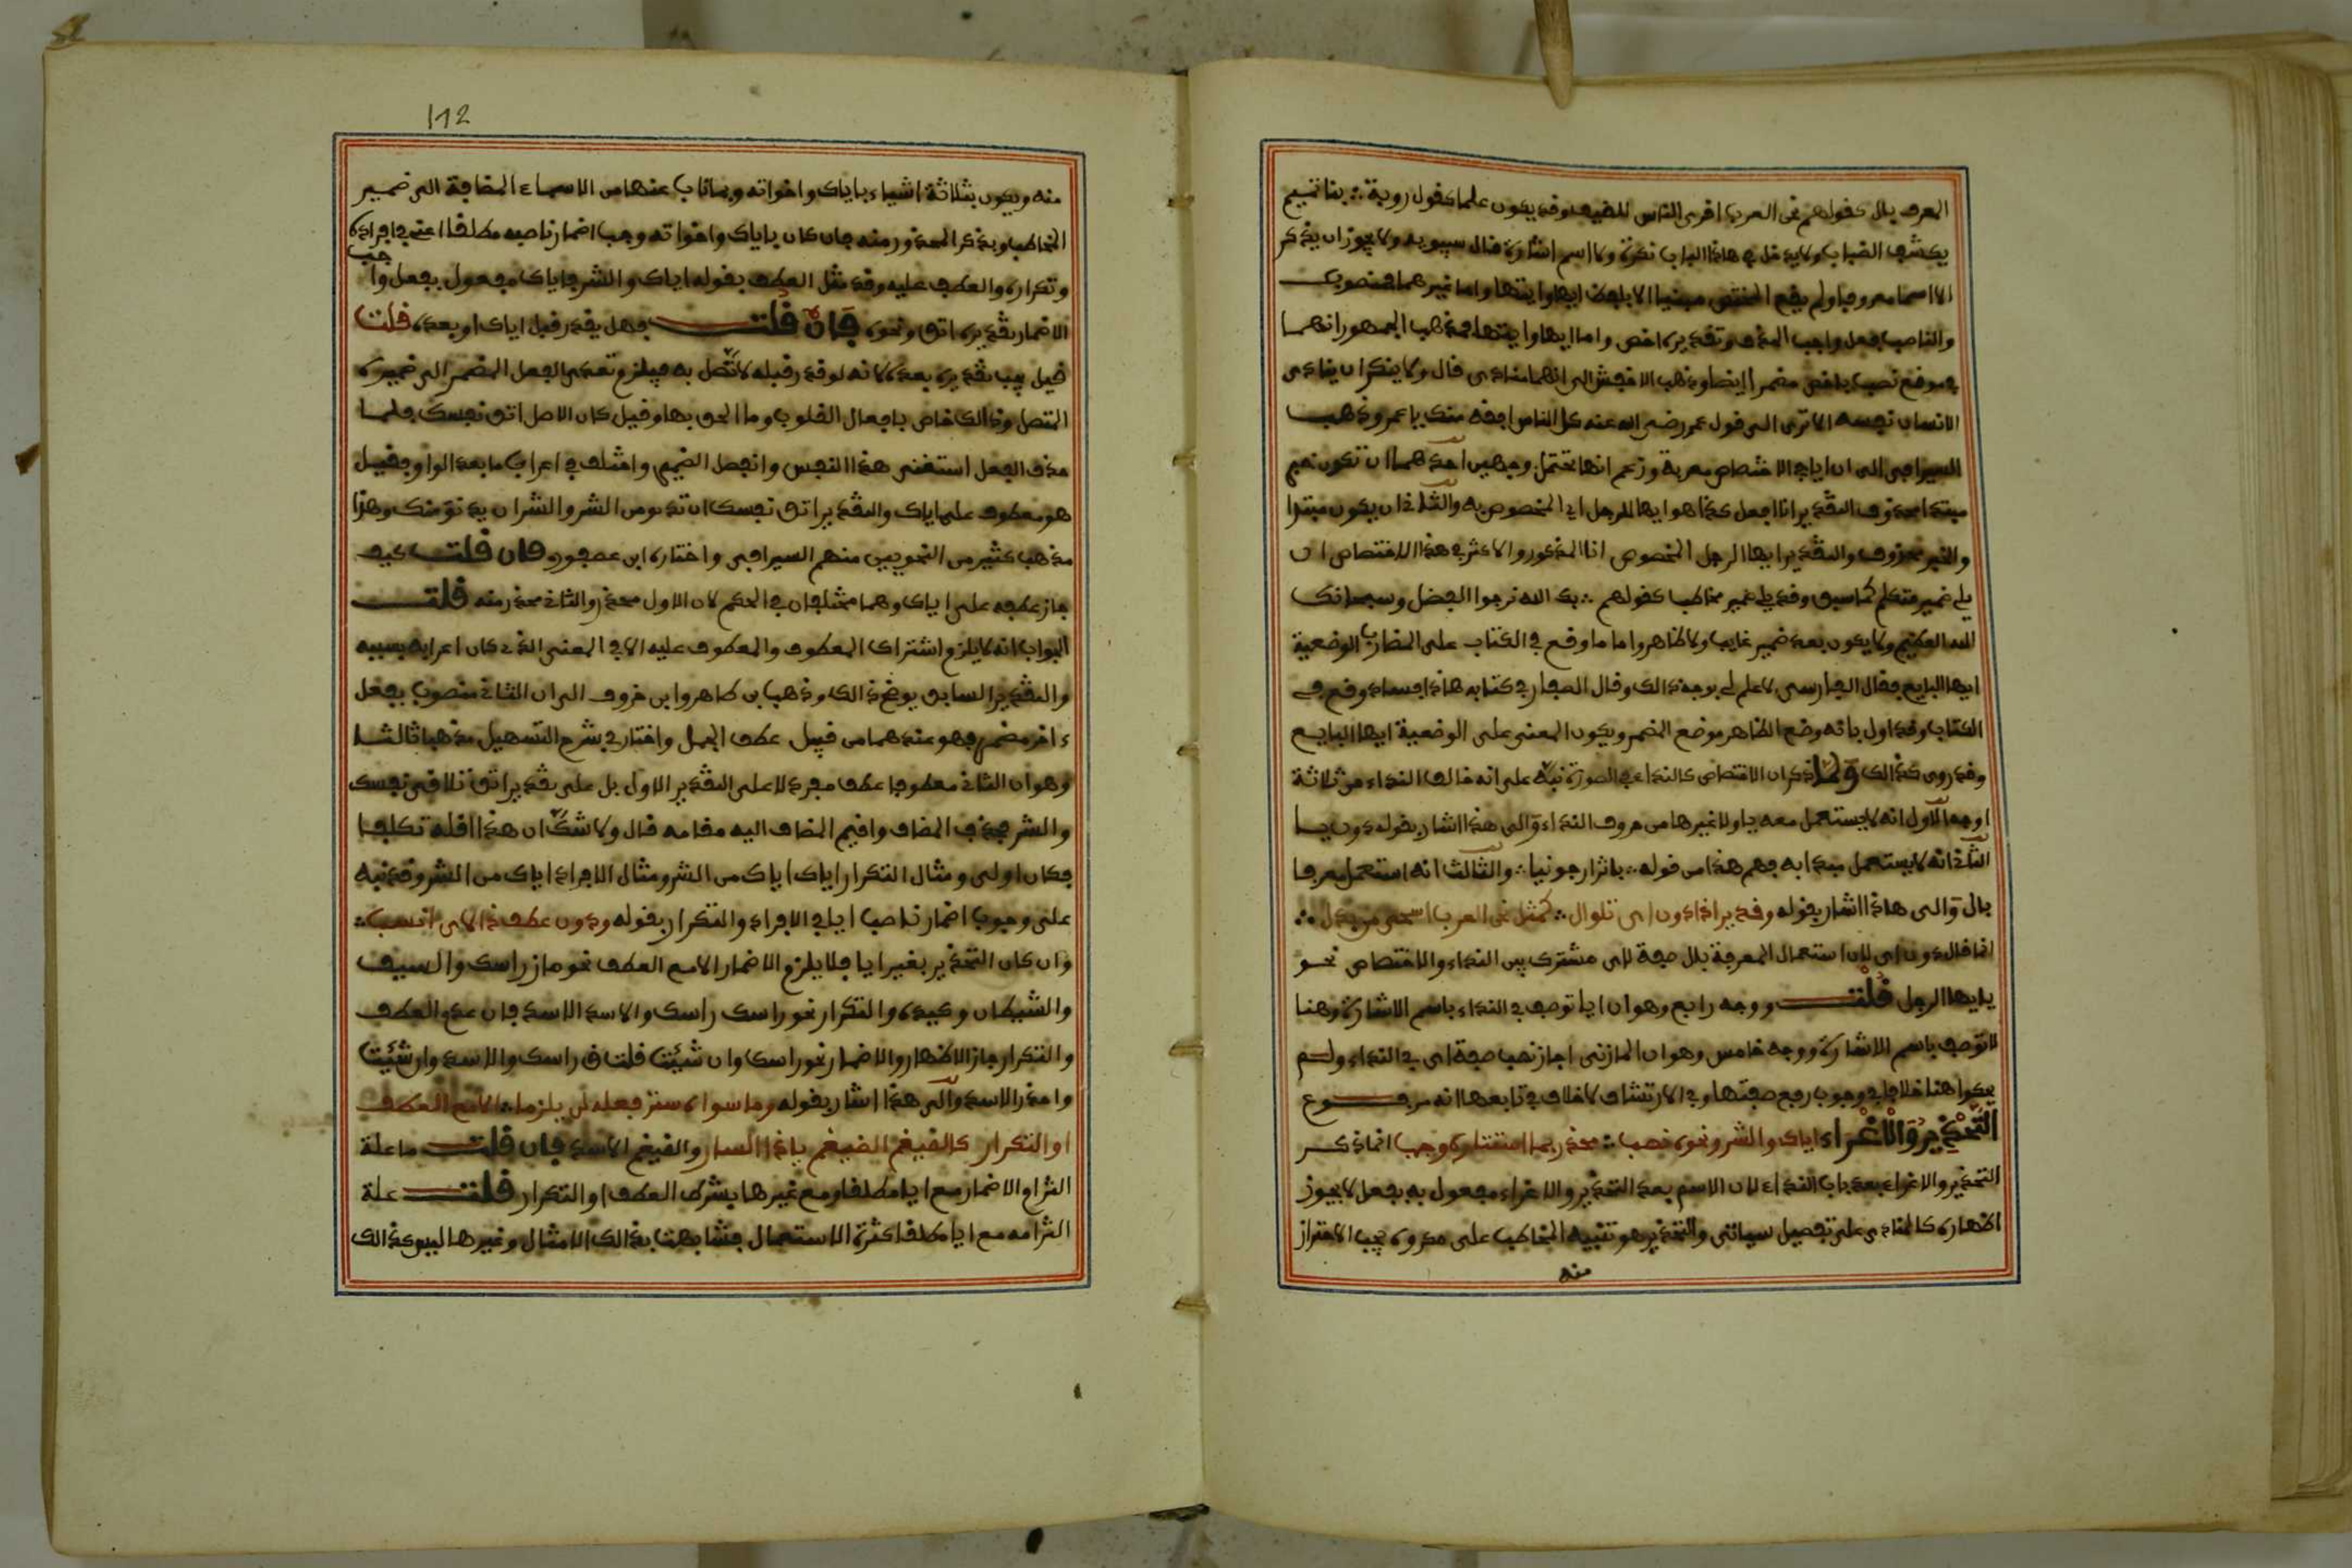 المعرف بال كقولهم نحن العرب اقرى الناس للضيف وقد يكون علما كقول روبة ∴ بنا تميم
يكشف الضباب ولا يدخل في هاذا الباب نكرة ولا اسم اشارة قال سيبويه ولا يجوز ان يذكر
الا اسما معروفا ولم يقع المختص مبنيا الا بلفظ ايها وايتها واما غيرهما فمنصوب
والناصب بفعل واجب الحذف وتقديره اخص واما ايها وايتها فمذهب الجمهور انهما
في موضع نصب باخص مضمرا ايضا وذهب الاخفش الى انهما منادى قال ولا ينكر ان ينادى
الانسان نفسه الا ترى الى قول عمر رضي الله عنه كل الناس افقه منك يا عمر وذهب
السيرافي الى ان ايا في الاختصاص معربة وزعم انها تحتمل وجهين احدهما ان تكون خبر
مبتدا محذوف التقدير انا افعل كذا هو ايها الرجل اي المخصوص به والثاني ان يكون مبتدا
والخبر محذوف والتقدير ايها الرجل المخصوص انا المذكور والاكثر في هذا الاختصاص ان
يلي ضمير متكلم كما سبق وقد يلي ضمير مخاطب كقولهم ∴ بك الله نرجوا الفضل وسبحانك
الله العظيم ولا يكون بعد ضمير غايب ولا ظاهر واما ما وقع في الكتاب على المضارب الوضعية
ايها البايع فقال الفارسي لا علم لي بوجه ذالك وقال الصفار في كتابه هاذا فساد وقع في
الكتاب وقد اول بانه وضع الظاهر موضع المضمر ويكون المعنى على الوضعية ايها البايع
وقد روى كذالك ولما ذكر ان الاختصاص كالنداء في الصورة نبه على انه خالف النداء من ثلاثة
اوجه الاول انه لا يستعمل معه يا ولا غيرها من حروف النداء والى هذا اشار بقوله دون يا
الثاني انه لا يستعمل مبدا به فهم هذا من قوله ∴ باثر ارجونيا ∴ والثالث انه استعمل معرفا
بال والى هاذا اشار بقوله وقد يرا ذا دون اى تلوال ∴ كمثل نحن العرب اسخى من بذل ∴
انما قال دون اى لان استعمال المعرفة بال صفة لاى مشترك بين النداء والاختصاص نحو
يايها الرجل قلت ووجه رابع وهو ان ايا توصف في النداء باسم الاشارة وهنا
لا توصف باسم الاشارة ووجه خامس وهو ان المازني اجاز نصب صفة اى في النداء ولم
يحكوا هنا خلافا في وجوب رفع صفتها وفي الارتشاف لا خلاف في تابعها انه مرفوع
التحذير والاغراء اياك والشر ونحوه نصب ∴ محذر بما استتاره وجب انما ذكر
التحذير والاغراء بعد باب النداء لان الاسم بعد التحذير والاغراء مفعول به بفعل لا يجوز
اظهاره كالمنادى على تفصيل سياتي والتحذير هو تنبيه المخاطب على مكروه يجب الاحتراز
منه
112
منه ويكون بثلاثة اشياء باياك واخواته وبما ناب عنها من الاسماء المضافة الى ضمير
المخاطب وبذكر المحذور منه فان كان باياك واخواته وجب اضمار ناصبه مطلقا اعني في افراده
وتكراره والعطف عليه وقد مثل العطف بقوله اياك والشر فاياك مفعول بفعل واجب
الاضمار تقديره اتق ونحوه فان قلت فهل يقدر قبل اياك او بعده قلت
قيل يجب تقديره بعده لانه لو قدر قبله لاتصل به فيلزم تعدي الفعل المضمر الى ضميره
المتصل وذالك خاص بافعال القلوب وما الحق بها وقيل كان الاصل اتق نفسك فلما
حذف الفعل استغنى هذا النفس وانفصل الضمير واختلف في اعراب ما بعد الواو فقيل
هو معطوف على اياك والتقدير اتق نفسك ان تدنو من الشر والشر ان يدنو منك وهذا
مذهب كثير من النحويين منهم السيرافي واختاره ابن عصفور فان قلت كيف
جاز عطفه على اياك وهما مختلفان في الحكم لان الاول محذر والثاني محذر منه قلت
الجواب انه لا يلزم اشتراك المعطوف والمعطوف عليه الا في المعنى الذي كان اعرابه بسببه
والتقدير السابق يوضح ذالك وذهب ابن طاهر وابن خروف الى ان الثاني منصوب بفعل
ءاخر مضمر فهو عندهما من قبيل عطف الجمل واختار في شرح التسهيل مذهبا ثالثا
وهو ان الثاني معطوفا عطف مفرد لا على التقدير الاول بل على تقدير اتق تلاقي نفسك
والشر فحذف المضاف واقيم المضاف اليه مقامه قال ولا شك ان هذا اقله تكلفا
فكان اولى ومثال التكرار اياك اياك من الشر ومثال الافراد اياك من الشر وقد نبه
على وجوب اضمار ناصب ايا في الافراد والتكرار بقوله ودون عطف ذا لايا انسب ∴
وان كان التحذير بغير ايا فلا يلزم الاضمار الا مع العطف نحو ماز راسك والسيف
والشيطان وكيده والتكرار نحو راسك راسك والاسد الاسد فان عدم العطف
والتكرار جاز الاظهار والاضمار نحو راسك وان شيئت قلت ق راسك والاسد وان شيئت
واحذر الاسد والى هذا اشار بقوله وما سواه ستر فعله لن يلزما ∴ الا مع العطف
او التكرار كالضيغم الضيغم ياذا السار والضيغم الاسد فان قلت ما علة
التزام الاضمار مع ايا مطلقا ومع غيرها بشرك العطف او التكرار قلت علة
التزامه مع ايا مطلقا كثرة الاستعمال فشابهت بذالك الامثال وغيرها ليس كذالك